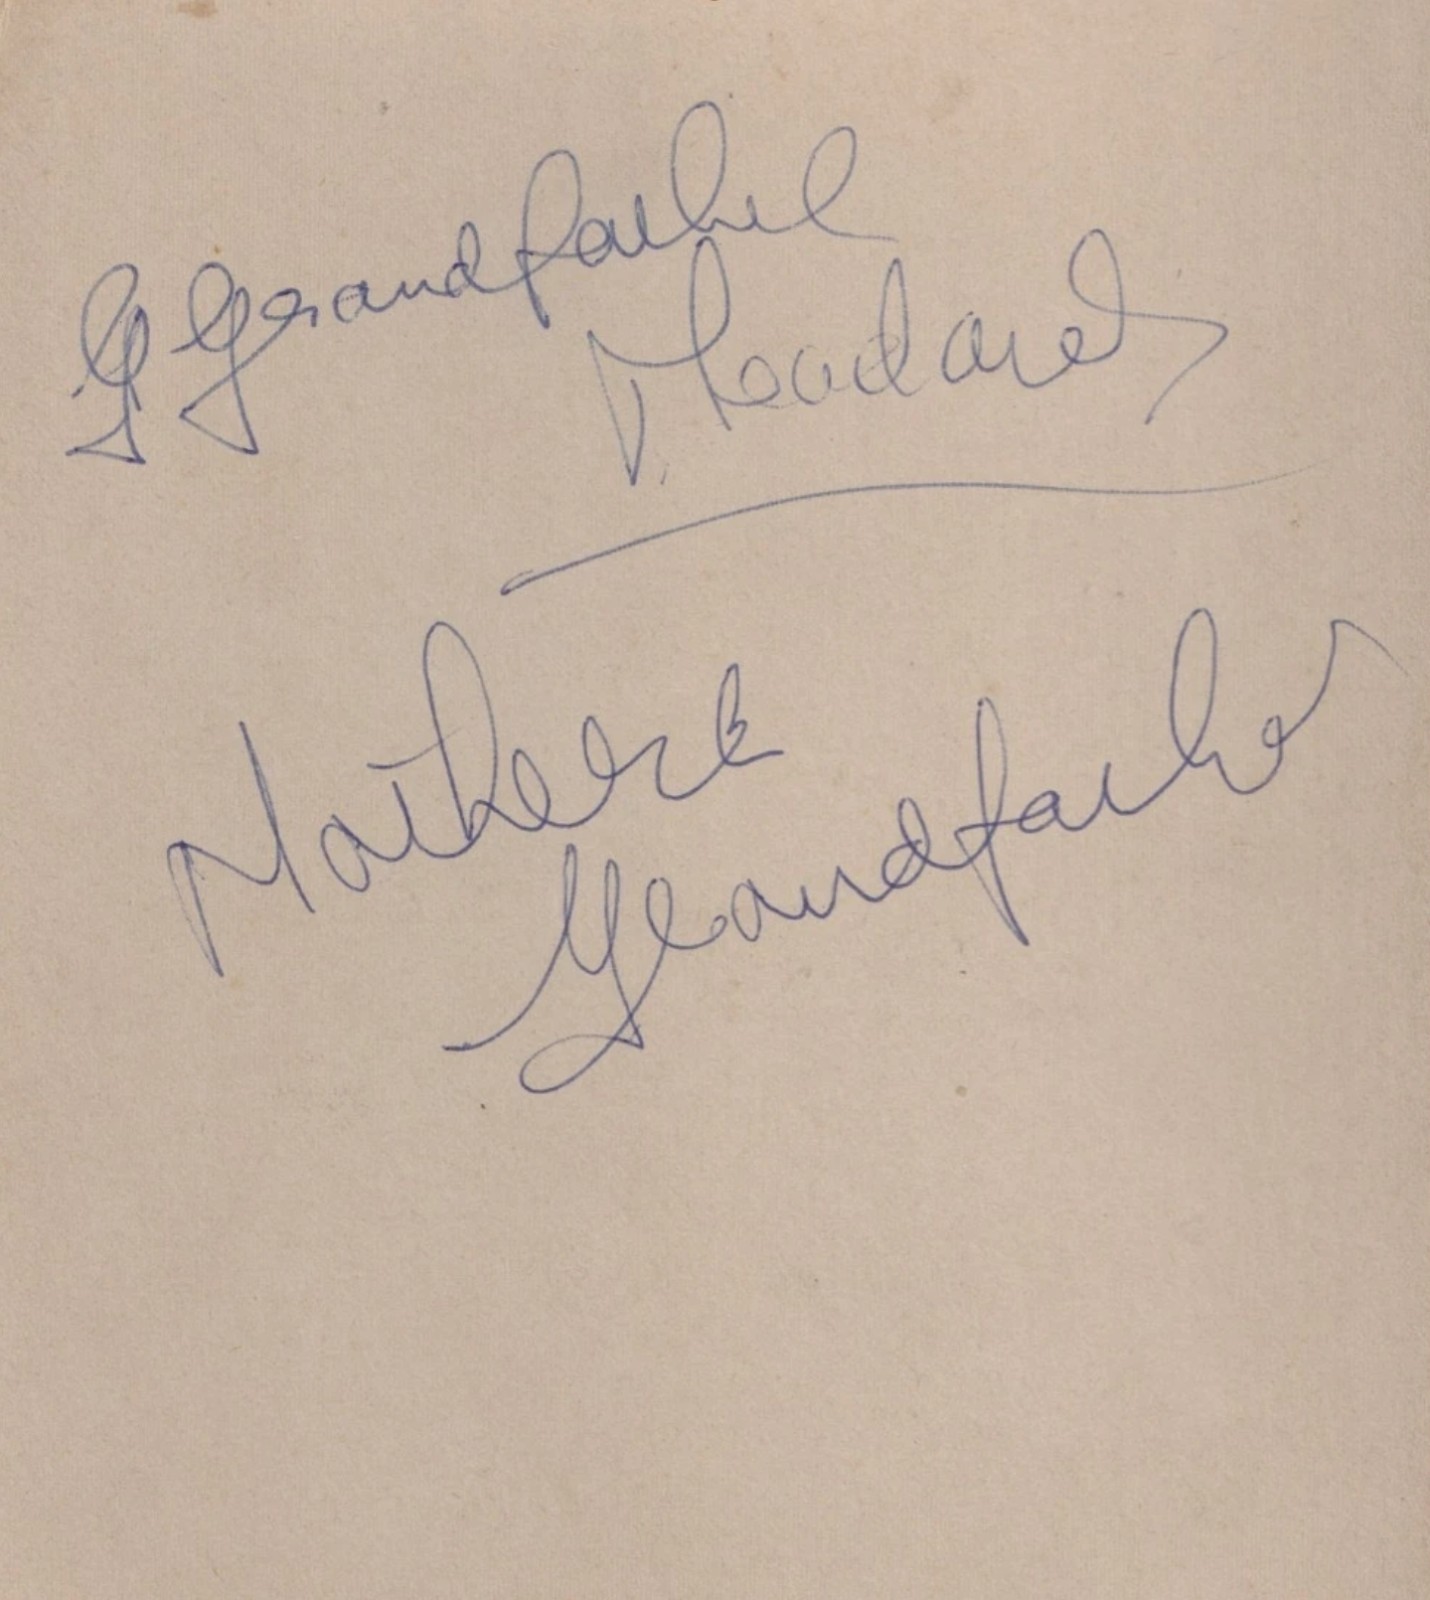 G Grandfather
Meadows
Mothers
Grandfather